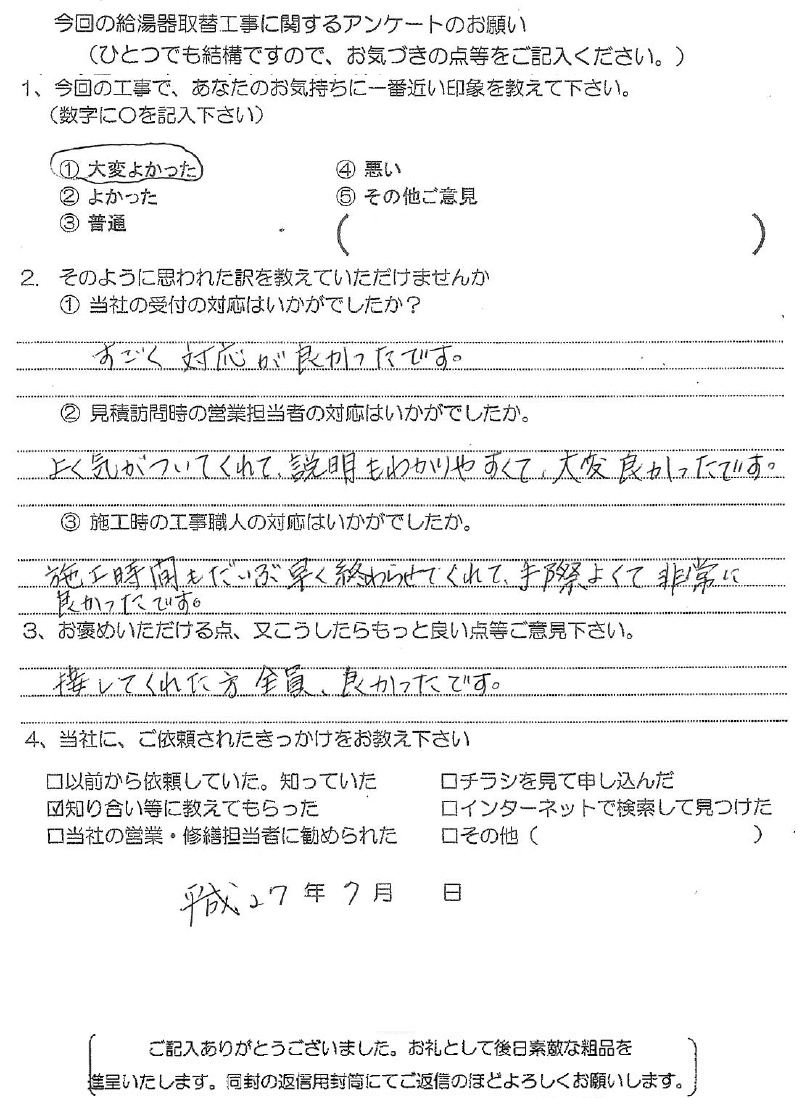 今回の給湯器取替工事に関するアンケートのお願い
(ひとつでも結構ですので、お気づきの点等をご記入ください。)
1、今回の工事で、あなたのお気持ちに一番近い印象を教えて下さい。
(数字に〇を記入下さい)
① 大変よかった ④ 悪い
② よかった ⑤ その他ご意見
③ 普通 ( )
2. そのように思われた訳を教えていただけませんか
① 当社の受付の対応はいかがでしたか？
すごく対応が良かったです。
② 見積訪問時の営業担当者の対応はいかがでしたか。
よく気がついてくれて、説明もわかりやすくて、大変良かったです。
③ 施工時の工事職人の対応はいかがでしたか。
施工時間もだいぶ早く終わらせてくれて、手際よくて非常に
良かったです。
3、お褒めいただける点、又こうしたらもっと良い点等ご意見下さい。
接してくれた方全員、良かったです。
4、当社に、ご依頼されたきっかけをお教え下さい
□以前から依頼していた。知っていた □チラシを見て申し込んだ
☑知り合い等に教えてもらった □インターネットで検索して見つけた
□当社の営業・修繕担当者に勧められた □その他 ( )
平成27年7月 日
ご記入ありがとうございました。お礼として後日素敵な粗品を
進呈いたします。同封の返信用封筒にてご返信のほどよろしくお願いします。